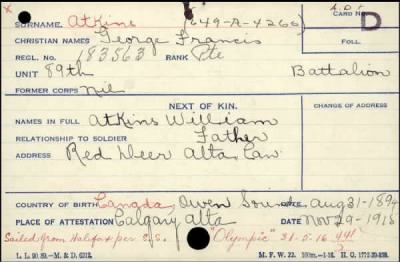 x L.D.1 CARD No.
SURNAME. Atkins (649-A-4266) D
CHRISTIAN NAMES George Francis FOLL.
REGL. No. 183563 RANK Pte
UNIT 89th Battalion
FORMER CORPS nil
NEXT OF KIN. CHANGE OF ADDRESS
NAMES IN FULL Atkins William
RELATIONSHIP TO SOLDIER Father
ADDRESS Red Deer Alta, Can.
COUNTRY OF BIRTH Canada, Owen Sound DATE Aug 31-1894
PLACE OF ATTESTATION Calgary Alta DATE Nov 29-1915
Sailed from Halifax per S.S. "Olympic" 31.5.16
L. L. M. & D. M. F. W. 22. H. Q.